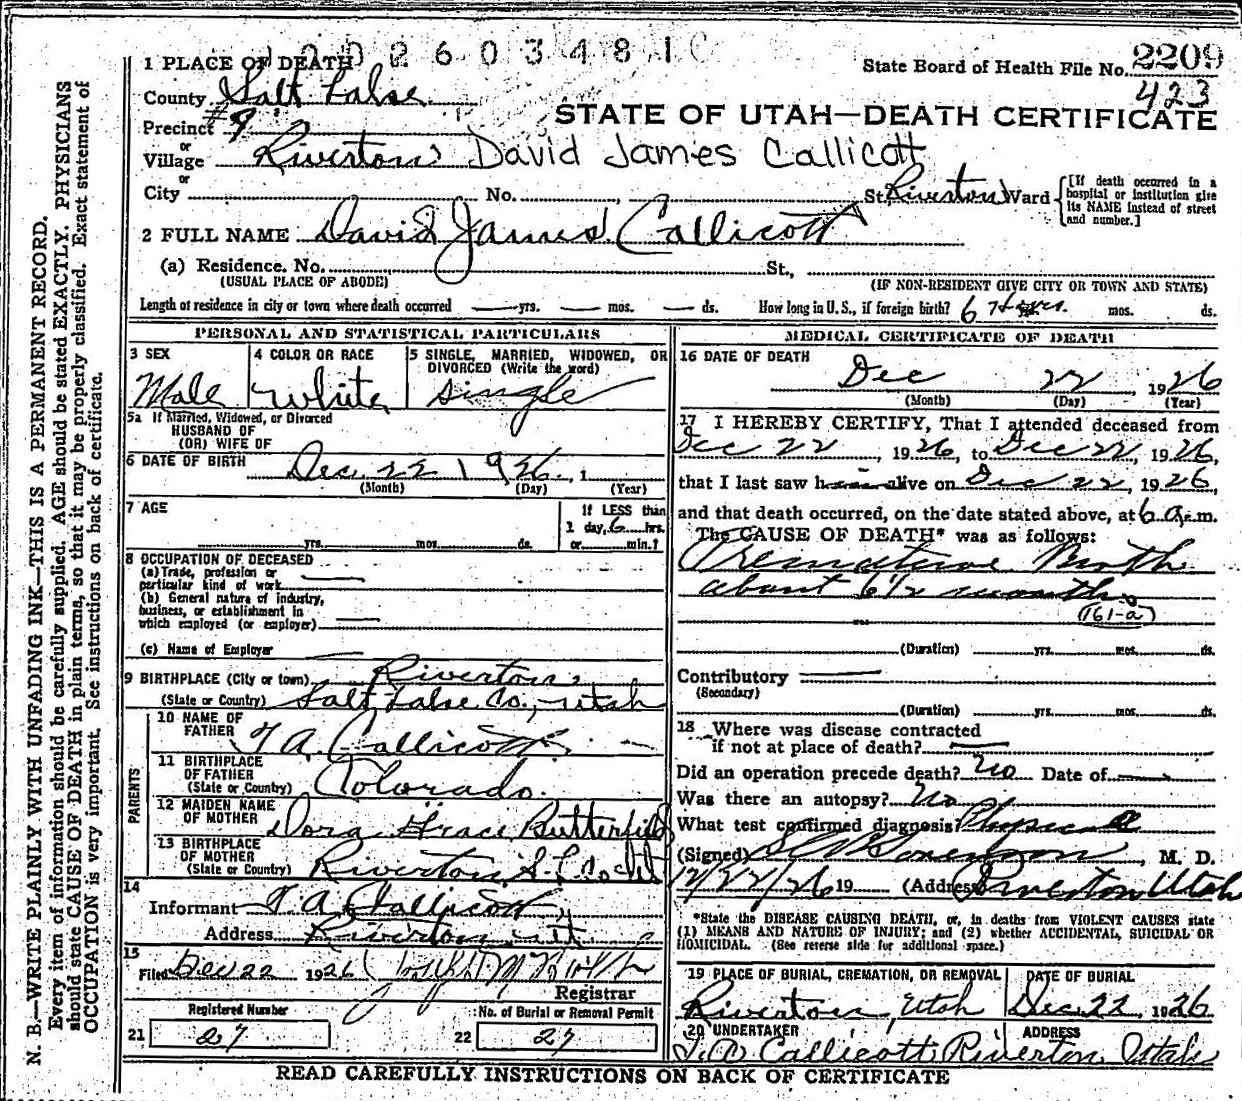 0026034810
1 PLACE OF DEATH
State Board of Health File No. 2209
423
County Salt Lake
STATE OF UTAH—DEATH CERTIFICATE
Precinct #9
or
Village Riverton David James Callicott
or
City No. , St. Riverton Ward
[If death occurred in a hospital or institution give its NAME instead of street and number.]
2 FULL NAME David James Callicott
(a) Residence. No. St.,
(USUAL PLACE OF ABODE) (IF NON-RESIDENT GIVE CITY OR TOWN AND STATE)
Length of residence in city or town where death occurred — yrs. — mos. — ds. How long in U. S., if foreign birth? 6 Hours. mos. ds.
PERSONAL AND STATISTICAL PARTICULARS
3 SEX
Male
4 COLOR OR RACE
White
5 SINGLE, MARRIED, WIDOWED, OR DIVORCED (Write the word)
Single
5a If Married, Widowed, or Divorced
HUSBAND OF
(OR) WIFE OF
6 DATE OF BIRTH Dec. 22 1926, 1
(Month) (Day) (Year)
7 AGE
yrs. mos. ds.
If LESS than
1 day, 6 hrs.
or min.?
8 OCCUPATION OF DECEASED
(a) Trade, profession or
particular kind of work —
(b) General nature of industry,
business, or establishment in
which employed (or employer) —
(c) Name of Employer —
9 BIRTHPLACE (City or town) Riverton
(State or Country) Salt Lake Co., Utah
PARENTS
10 NAME OF
FATHER T A Callicott
11 BIRTHPLACE
OF FATHER
(State or Country) Colorado.
12 MAIDEN NAME
OF MOTHER Dora Grace Butterfield
13 BIRTHPLACE
OF MOTHER
(State or Country) Riverton S. L. Co Ut
14
Informant T. A. Callicott
Address Riverton, Ut.
15
Filed Dec 22 1926
Registrar
Registered Number
21 27
No. of Burial or Removal Permit
22 27
MEDICAL CERTIFICATE OF DEATH
16 DATE OF DEATH
Dec 22, 1926
(Month) (Day) (Year)
17 I HEREBY CERTIFY, That I attended deceased from
Dec 22, 1926, to Dec 22, 1926,
that I last saw h alive on Dec 22, 1926,
and that death occurred, on the date stated above, at 6 a. m.
The CAUSE OF DEATH* was as follows:
Premature Birth
about 6½ months
(161-a)
(Duration) yrs. mos. ds.
Contributory —
(Secondary)
(Duration) yrs. mos. ds.
18 Where was disease contracted
if not at place of death? —
Did an operation precede death? No Date of —
Was there an autopsy? No
What test confirmed diagnosis Physical
(Signed) , M. D.
12/22/26 19 (Address) Riverton Utah
*State the DISEASE CAUSING DEATH, or, in deaths from VIOLENT CAUSES state
(1) MEANS AND NATURE OF INJURY; and (2) whether ACCIDENTAL, SUICIDAL OR
HOMICIDAL. (See reverse side for additional space.)
19 PLACE OF BURIAL, CREMATION, OR REMOVAL
Riverton, Utah
DATE OF BURIAL
Dec. 22 1926
20 UNDERTAKER
T. A. Callicott
ADDRESS
Riverton Utah
READ CAREFULLY INSTRUCTIONS ON BACK OF CERTIFICATE
N. B.—WRITE PLAINLY WITH UNFADING INK—THIS IS A PERMANENT RECORD.
Every item of information should be carefully supplied. AGE should be stated EXACTLY. PHYSICIANS
should state CAUSE OF DEATH in plain terms, so that it may be properly classified. Exact statement of
OCCUPATION is very important. See instructions on back of certificate.